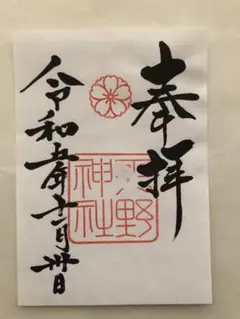 奉拝
平野
神社
令和五年十一月卅日